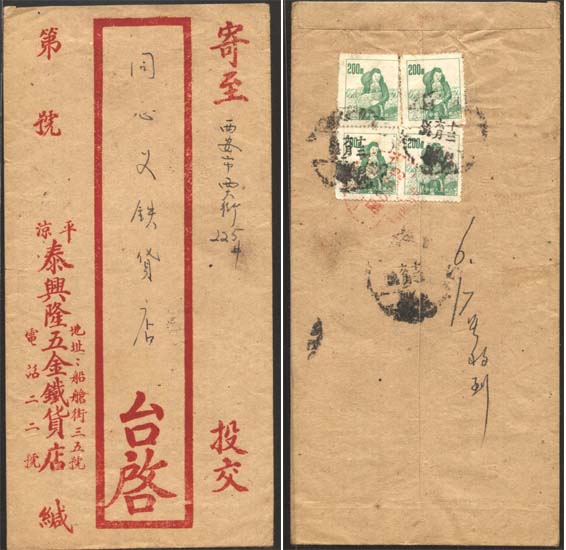 寄至
西安市西大街
225号
投交
同心义铁货店
台啓
第 號
平涼
泰興隆五金鐵貨店 緘
地址：船艙街三五號
電話二二號
200圓
200
200
6.17号收到